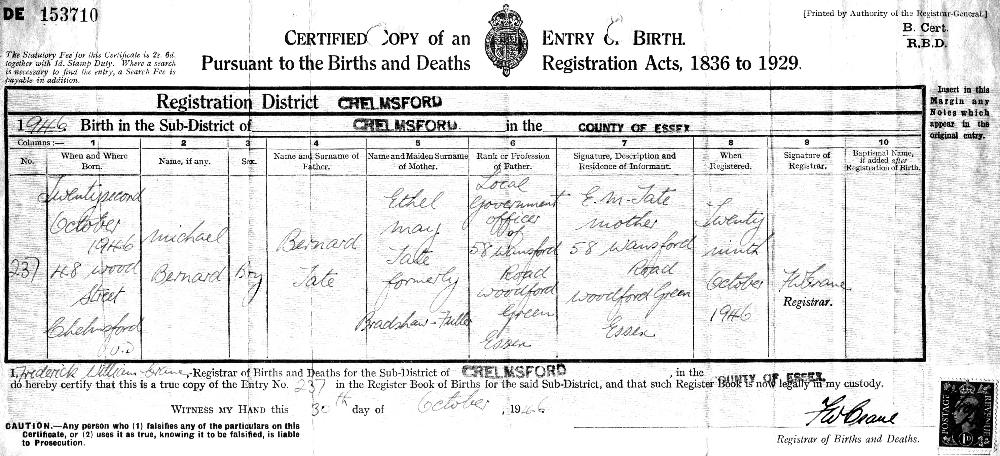 DE 153710
[Printed by Authority of the Registrar-General.]
B. Cert.
R.B.D.
The Statutory Fee for this Certificate is 2s. 6d.
together with 1d. Stamp Duty. Where a search
is necessary to find the entry, a Search Fee is
payable in addition.
CERTIFIED COPY of an ENTRY OF BIRTH.
Pursuant to the Births and Deaths Registration Acts, 1836 to 1929.
Insert in this
Margin any
Notes which
appear in the
original entry.
Registration District CHELMSFORD
1946 Birth in the Sub-District of CHELMSFORD in the COUNTY OF ESSEX
Columns:— 1 2 3 4 5 6 7 8 9 10
No.
When and Where
Born.
Name, if any.
Sex.
Name and Surname of
Father.
Name and Maiden Surname
of Mother.
Rank or Profession
of Father.
Signature, Description and
Residence of Informant.
When
Registered.
Signature of
Registrar.
Baptismal Name,
if added after
Registration of Birth.
237
Twenty second
October
1946
48 Wood
Street
Chelmsford
U.D
Michael
Bernard
Boy
Bernard
Tate
Ethel
May
Tate
formerly
Bradshaw-Fuller
Local
Government
officer
of
58 Wansford
Road
Woodford
Green
Essex
E. M. Tate
mother
58 Wansford
Road
Woodford Green
Essex
Twenty
ninth
October
1946
F W Crane
Registrar.
I, Frederick William Crane, Registrar of Births and Deaths for the Sub-District of CHELMSFORD, in the COUNTY OF ESSEX
do hereby certify that this is a true copy of the Entry No. 237 in the Register Book of Births for the said Sub-District, and that such Register Book is now legally in my custody.
WITNESS MY HAND this 30th day of October, 1946
CAUTION.—Any person who (1) falsifies any of the particulars on this
Certificate, or (2) uses it as true, knowing it to be falsified, is liable
to Prosecution.
F W Crane
Registrar of Births and Deaths.
POSTAGE
1D